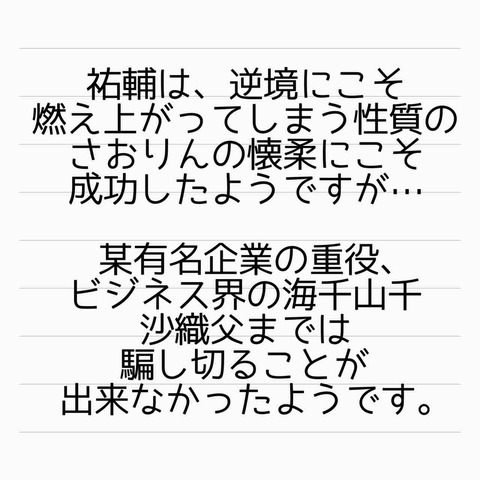 祐輔は、逆境にこそ
燃え上がってしまう性質の
さおりんの懐柔にこそ
成功したようですが…
某有名企業の重役、
ビジネス界の海千山千
沙織父までは
騙し切ることが
出来なかったようです。